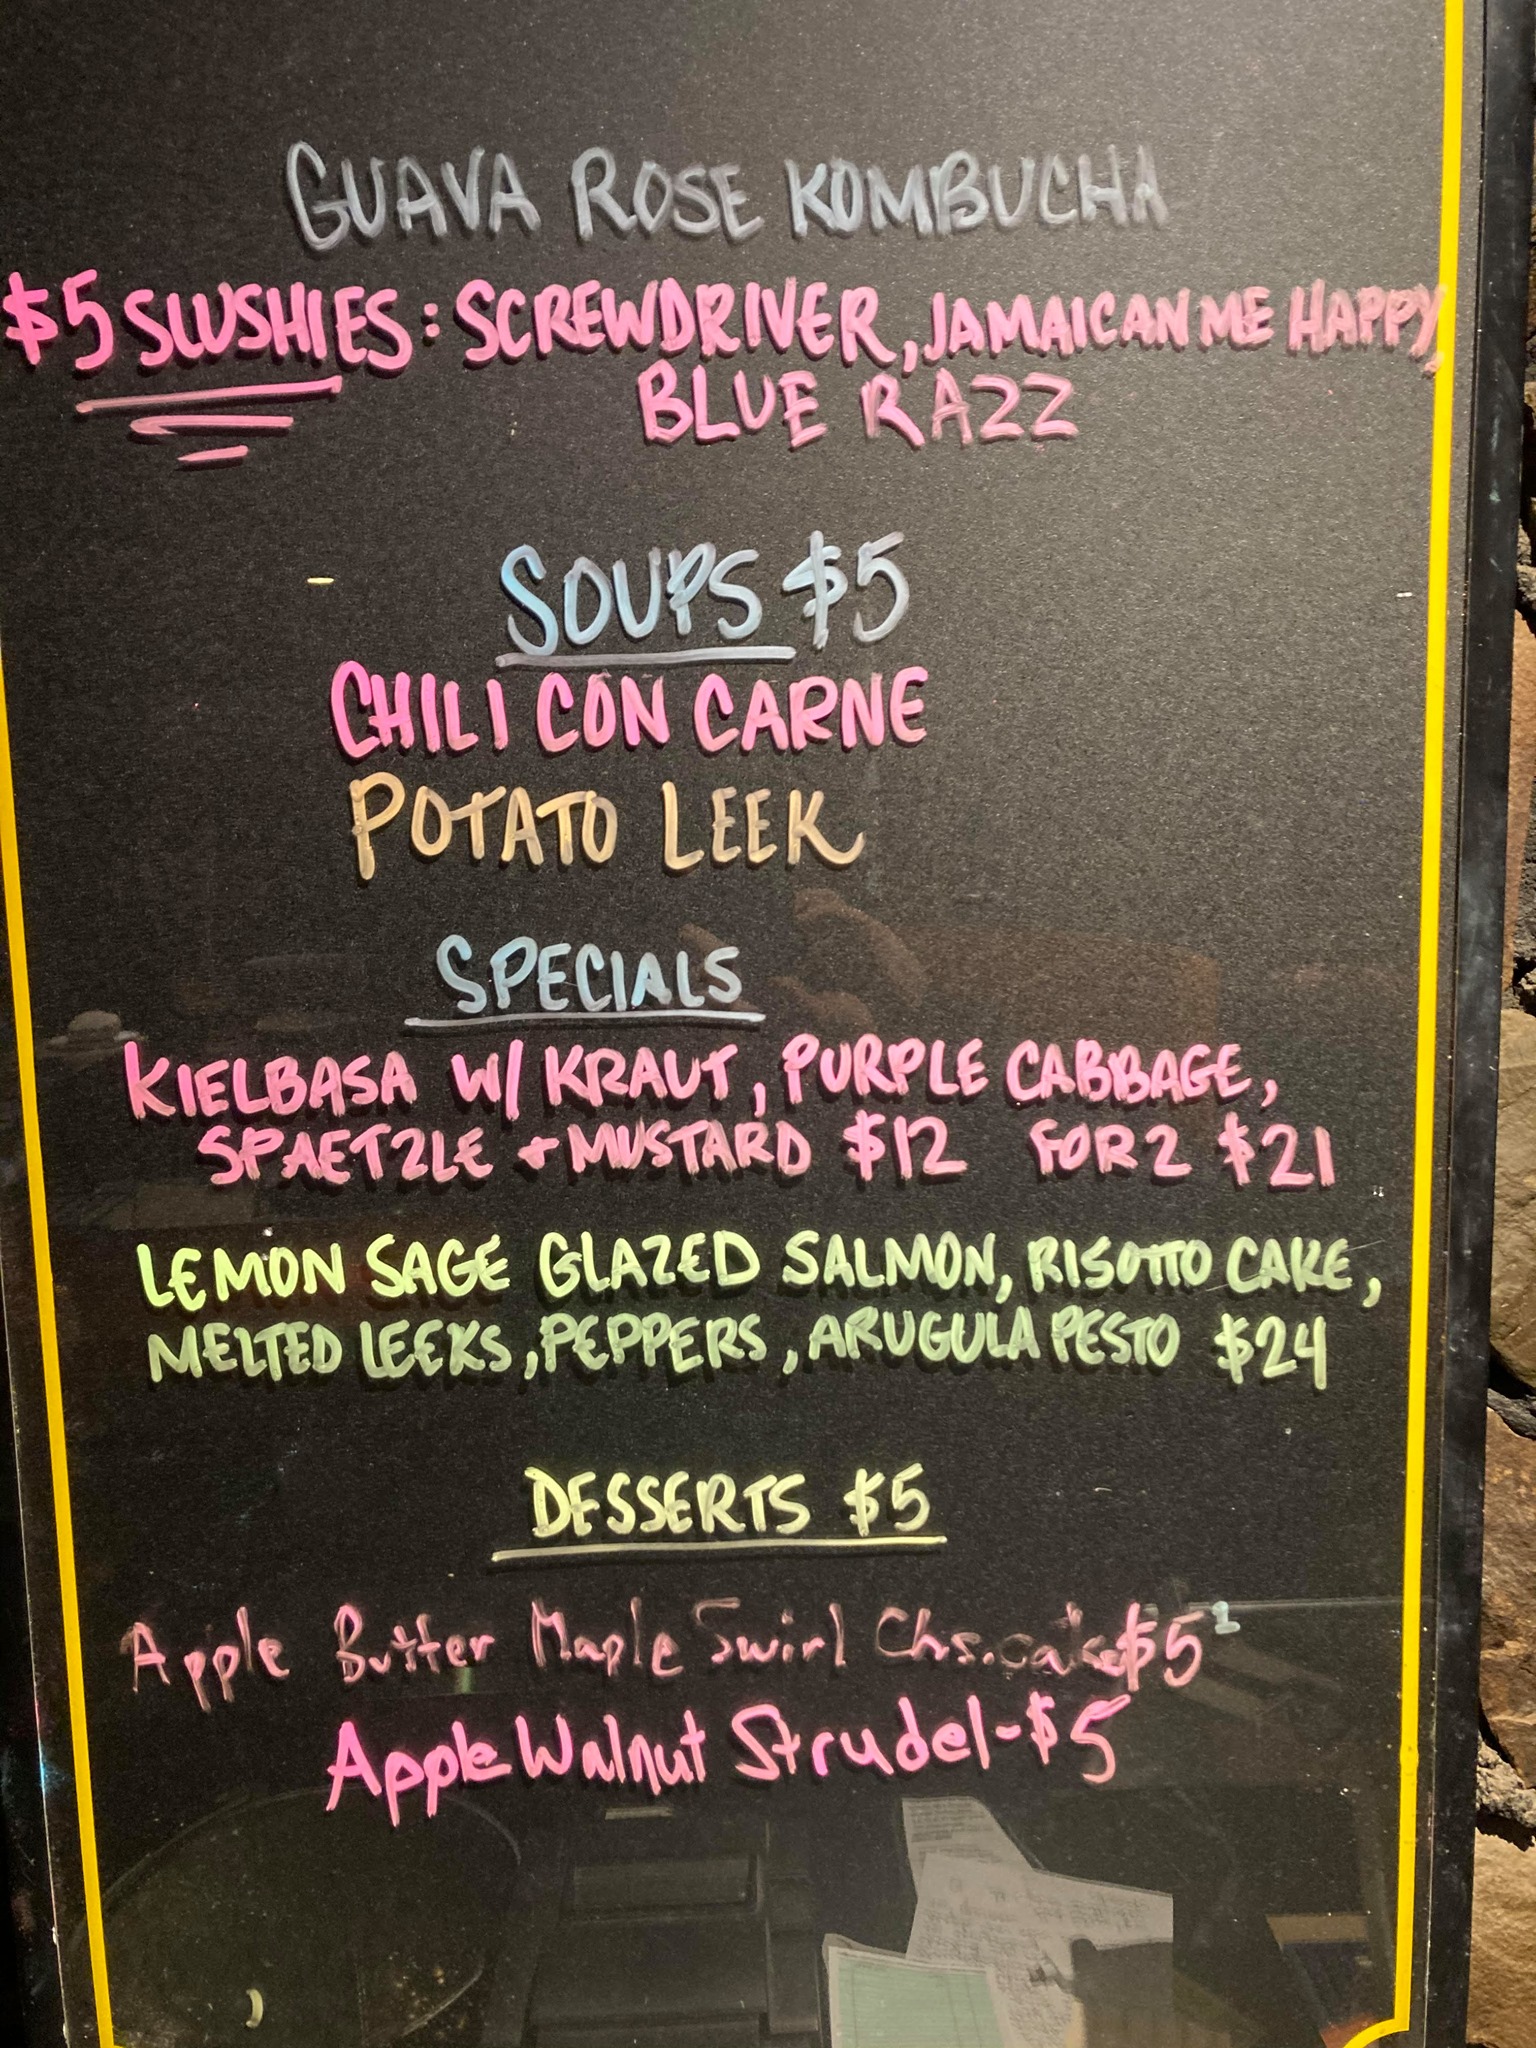 GUAVA ROSE KOMBUCHA
$5 SLUSHIES: SCREWDRIVER, JAMAICAN ME HAPPY,
BLUE RAZZ
SOUPS $5
CHILI CON CARNE
POTATO LEEK
SPECIALS
KIELBASA W/ KRAUT, PURPLE CABBAGE,
SPAETZLE + MUSTARD $12 FOR 2 $21
LEMON SAGE GLAZED SALMON, RISOTTO CAKE,
MELTED LEEKS, PEPPERS, ARUGULA PESTO $24
DESSERTS $5
Apple Butter Maple Swirl Chs.cake $5
Apple Walnut Strudel-$5